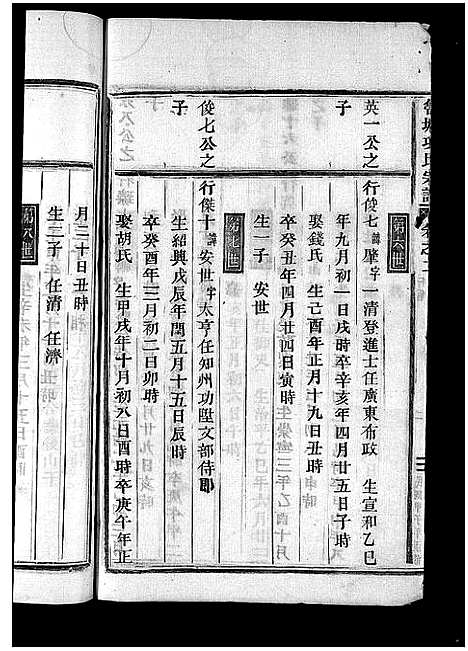 第六世
英一公之子
行俊七諱肇字一清登進士任廣東布政 生宣和乙巳
年九月初一日戌時卒辛亥年四月廿五日子時
娶錢氏 生己酉年正月十九日丑時
卒癸丑年四月廿四日寅時
生一子 安世
第七世
俊七公之子
行傑十諱安世字太亨任知州功陞文部侍郎
生紹興戊辰年閏五月十五日辰時
卒癸酉年三月初二日卯時
娶胡氏 生甲戌年十月初八日酉時卒庚午年正
月三十日丑時
生二子 任清 任濟
第八世